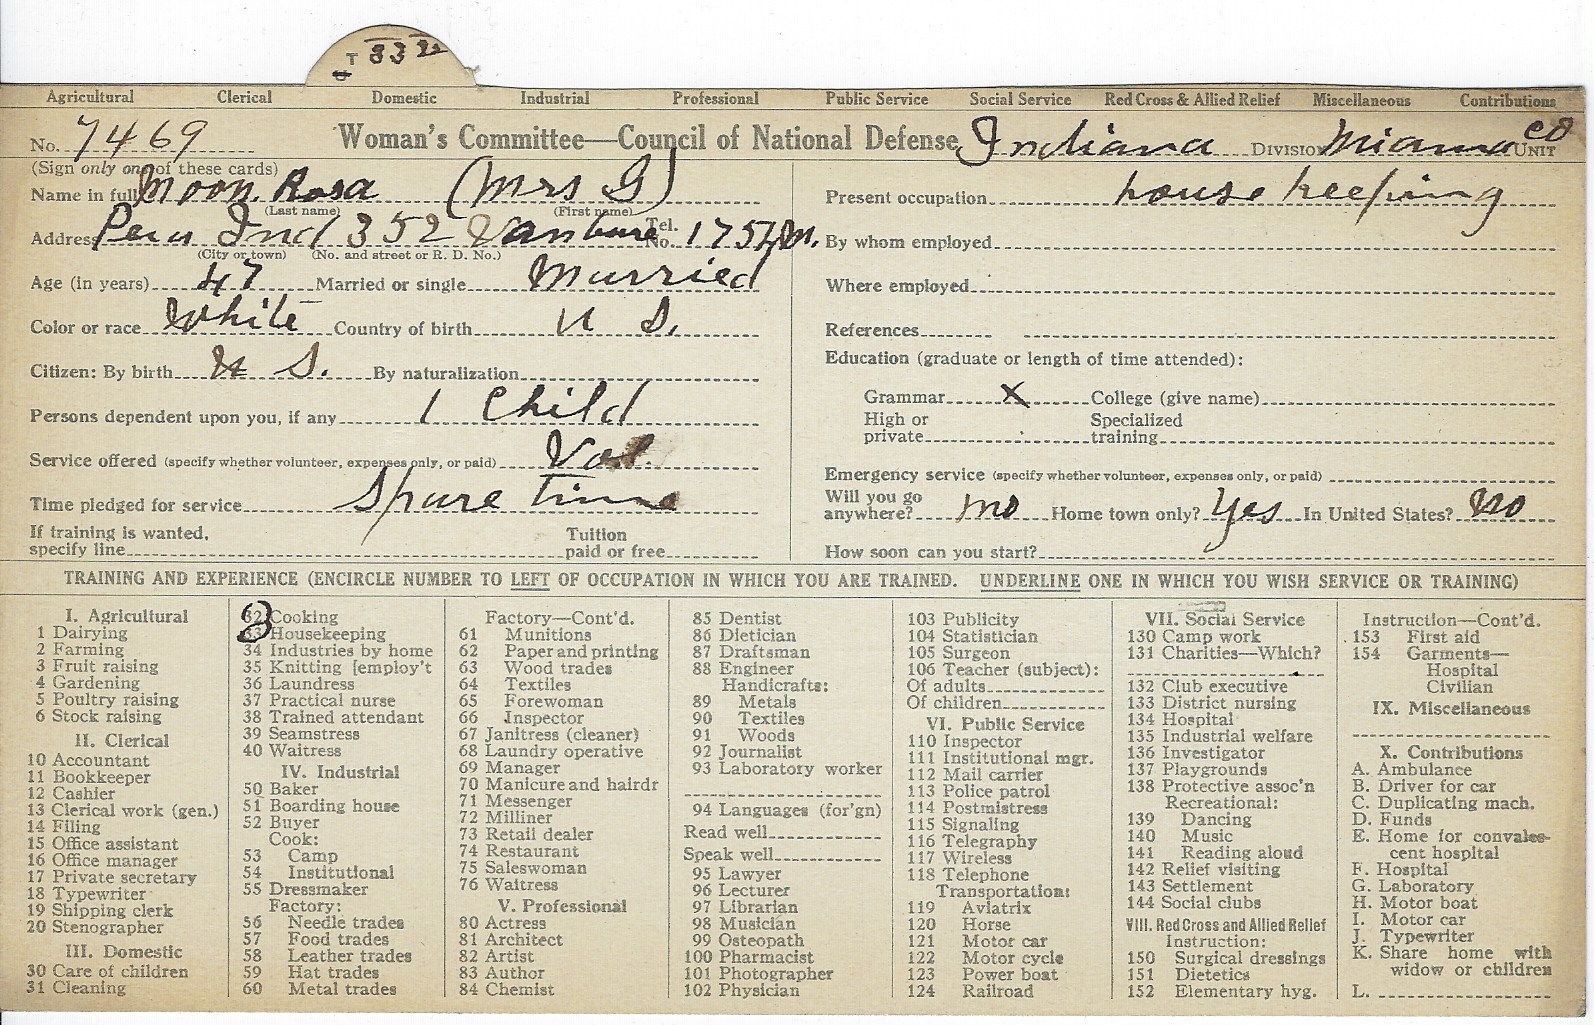 T 33 32
Agricultural Clerical Domestic Industrial Professional Public Service Social Service Red Cross & Allied Relief Miscellaneous Contributions
No. 7469 Woman's Committee—Council of National Defense Indiana DIVISION Miami Co UNIT
(Sign only one of these cards)
Name in full Moon. Rosa (Mrs G)
(Last name) (First name)
Address Peru Ind 352 Vanbure Tel. No. 1757 M.
(City or town) (No. and street or R. D. No.)
Age (in years) 47 Married or single Married
Color or race White Country of birth U S.
Citizen: By birth U S. By naturalization
Persons dependent upon you, if any 1 Child
Service offered (specify whether volunteer, expenses only, or paid) Vol.
Time pledged for service Spare time
If training is wanted, specify line Tuition paid or free
Present occupation house keeping
By whom employed
Where employed
References
Education (graduate or length of time attended):
Grammar X College (give name)
High or private Specialized training
Emergency service (specify whether volunteer, expenses only, or paid)
Will you go anywhere? no Home town only? Yes In United States? No
How soon can you start?
TRAINING AND EXPERIENCE (ENCIRCLE NUMBER TO LEFT OF OCCUPATION IN WHICH YOU ARE TRAINED. UNDERLINE ONE IN WHICH YOU WISH SERVICE OR TRAINING)
I. Agricultural
1 Dairying
2 Farming
3 Fruit raising
4 Gardening
5 Poultry raising
6 Stock raising
II. Clerical
10 Accountant
11 Bookkeeper
12 Cashier
13 Clerical work (gen.)
14 Filing
15 Office assistant
16 Office manager
17 Private secretary
18 Typewriter
19 Shipping clerk
20 Stenographer
III. Domestic
30 Care of children
31 Cleaning
32 Cooking
33 Housekeeping
34 Industries by home
35 Knitting [employ't
36 Laundress
37 Practical nurse
38 Trained attendant
39 Seamstress
40 Waitress
IV. Industrial
50 Baker
51 Boarding house
52 Buyer
Cook:
53 Camp
54 Institutional
55 Dressmaker
Factory:
56 Needle trades
57 Food trades
58 Leather trades
59 Hat trades
60 Metal trades
Factory—Cont'd.
61 Munitions
62 Paper and printing
63 Wood trades
64 Textiles
65 Forewoman
66 Inspector
67 Janitress (cleaner)
68 Laundry operative
69 Manager
70 Manicure and hairdr
71 Messenger
72 Milliner
73 Retail dealer
74 Restaurant
75 Saleswoman
76 Waitress
V. Professional
80 Actress
81 Architect
82 Artist
83 Author
84 Chemist
85 Dentist
86 Dietician
87 Draftsman
88 Engineer
Handicrafts:
89 Metals
90 Textiles
91 Woods
92 Journalist
93 Laboratory worker
94 Languages (for'gn)
Read well
Speak well
95 Lawyer
96 Lecturer
97 Librarian
98 Musician
99 Osteopath
100 Pharmacist
101 Photographer
102 Physician
103 Publicity
104 Statistician
105 Surgeon
106 Teacher (subject):
Of adults
Of children
VI. Public Service
110 Inspector
111 Institutional mgr.
112 Mail carrier
113 Police patrol
114 Postmistress
115 Signaling
116 Telegraphy
117 Wireless
118 Telephone
Transportation:
119 Aviatrix
120 Horse
121 Motor car
122 Motor cycle
123 Power boat
124 Railroad
VII. Social Service
130 Camp work
131 Charities—Which?
132 Club executive
133 District nursing
134 Hospital
135 Industrial welfare
136 Investigator
137 Playgrounds
138 Protective assoc'n
Recreational:
139 Dancing
140 Music
141 Reading aloud
142 Relief visiting
143 Settlement
144 Social clubs
VIII. Red Cross and Allied Relief
Instruction:
150 Surgical dressings
151 Dietetics
152 Elementary hyg.
Instruction—Cont'd.
153 First aid
154 Garments—
Hospital
Civilian
IX. Miscellaneous
X. Contributions
A. Ambulance
B. Driver for car
C. Duplicating mach.
D. Funds
E. Home for convales-
cent hospital
F. Hospital
G. Laboratory
H. Motor boat
I. Motor car
J. Typewriter
K. Share home with
widow or children
L.